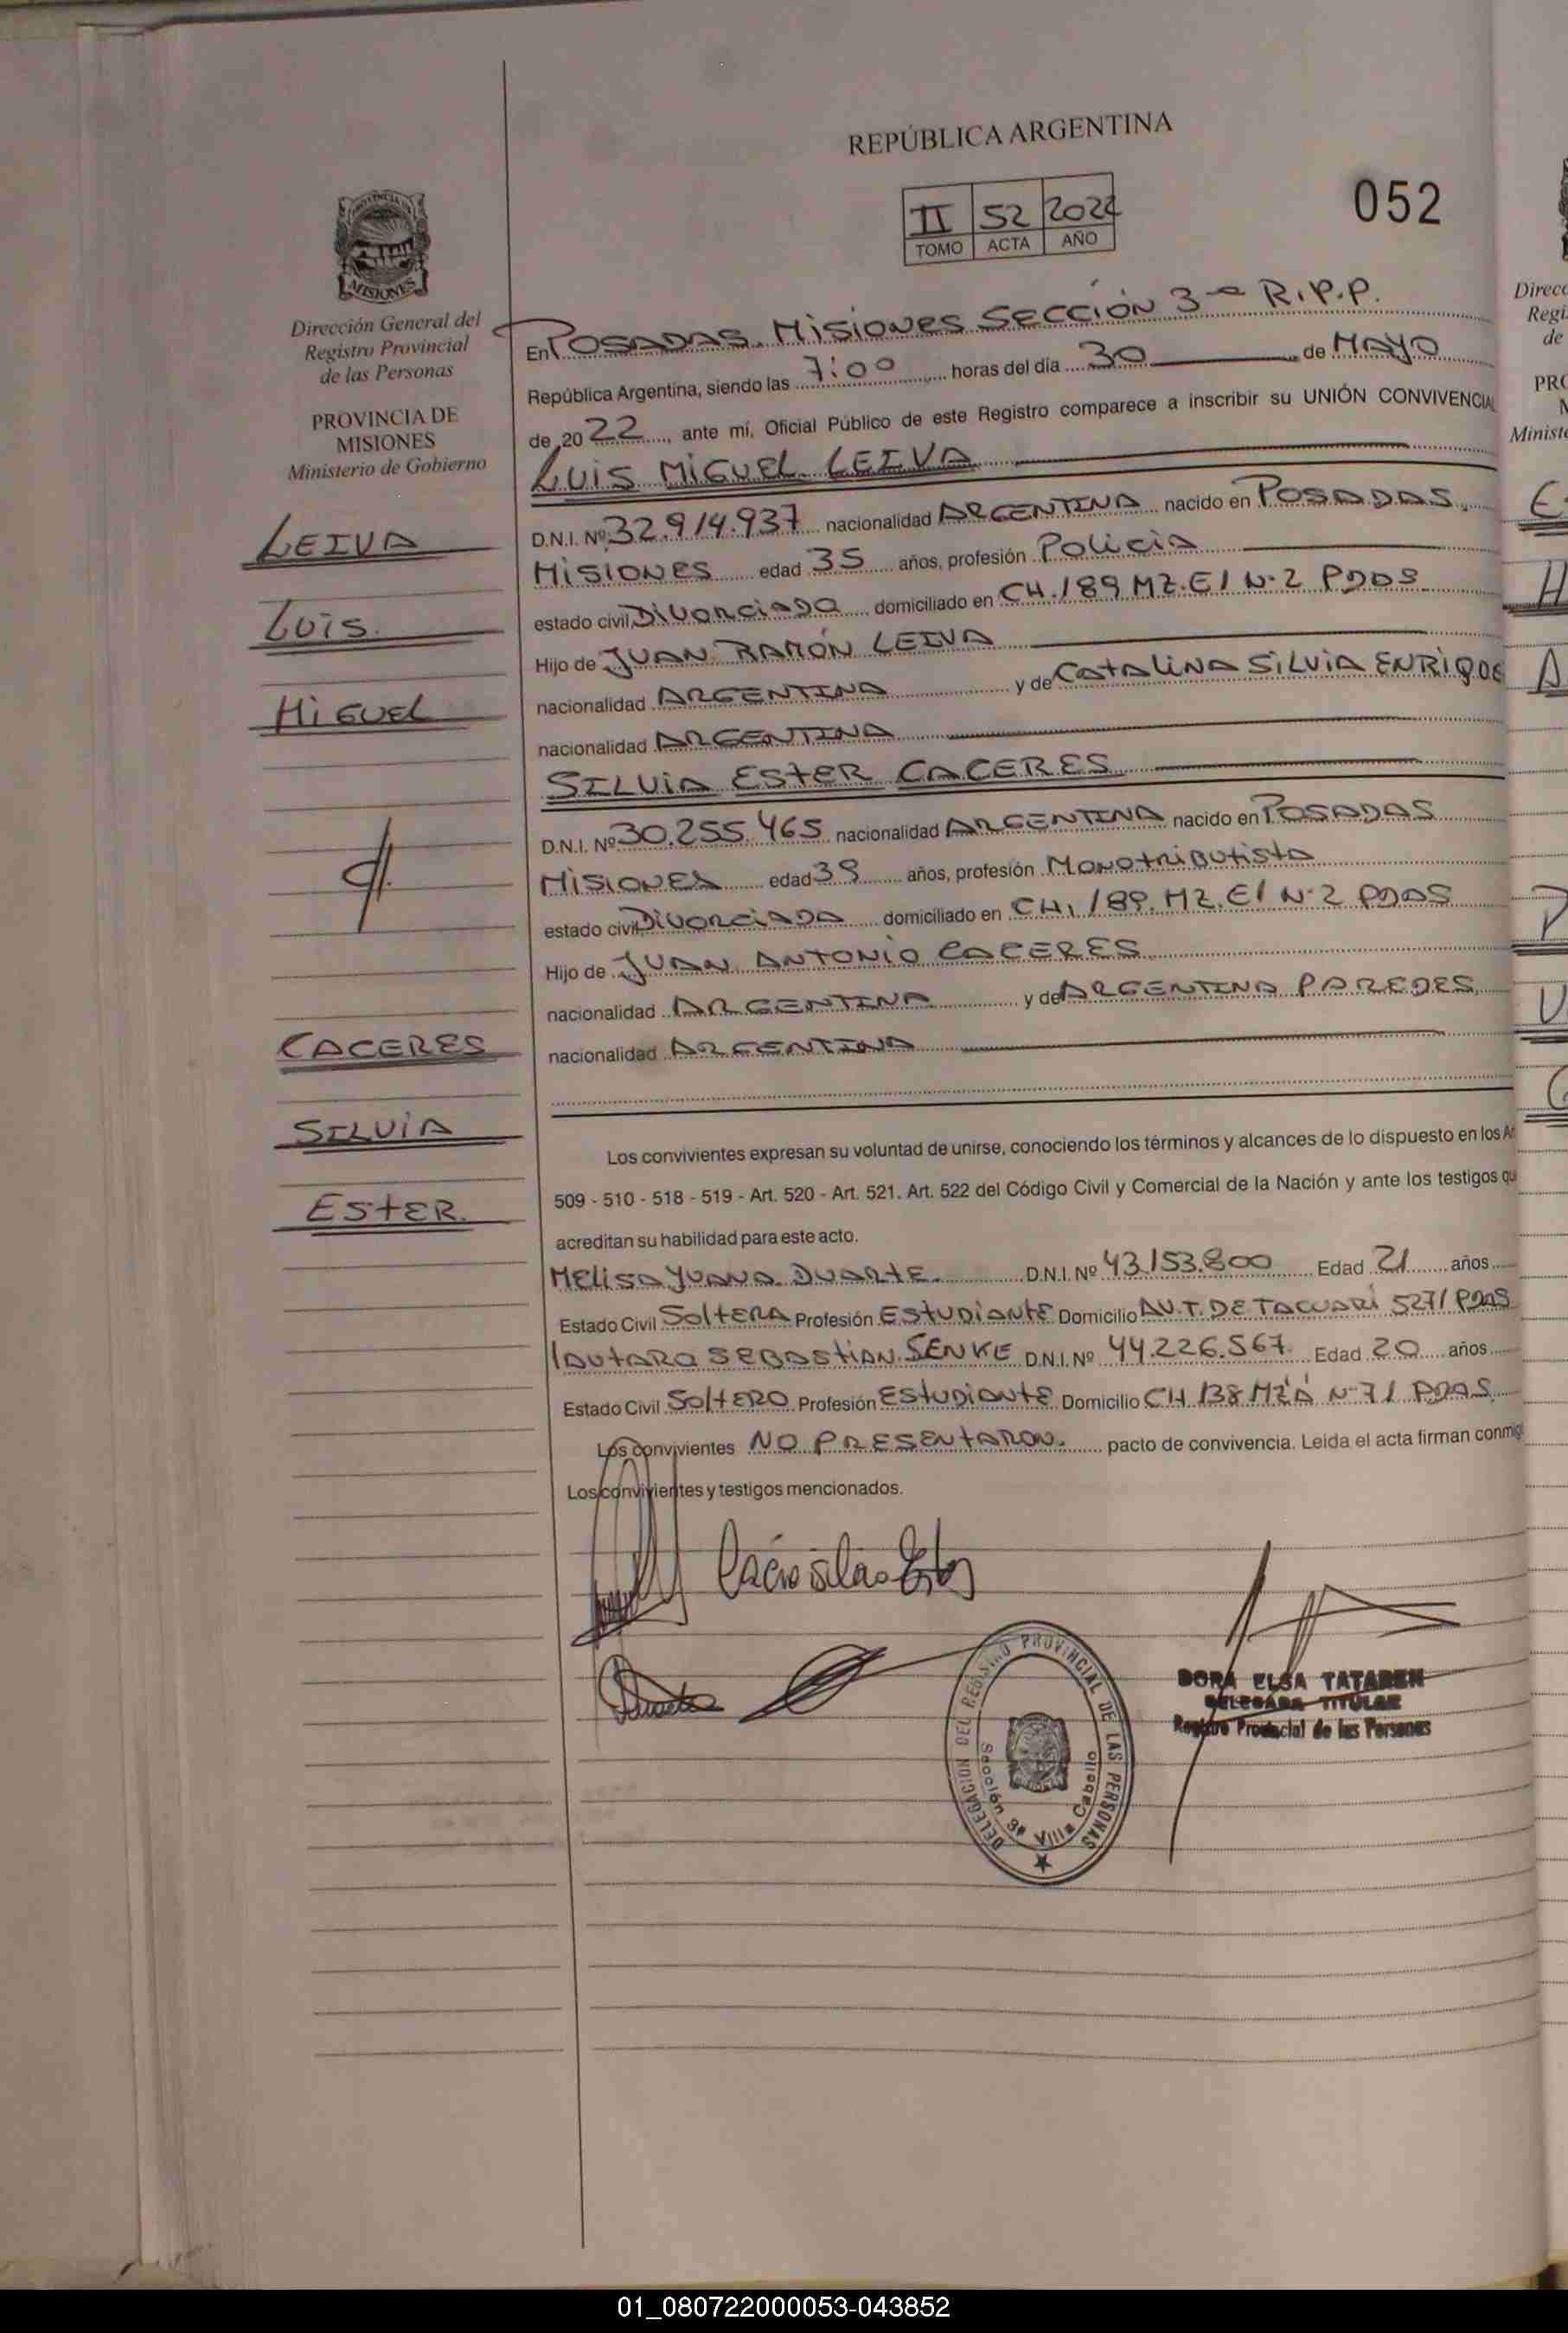 REPÚBLICA ARGENTINA
052
II 52 2022
TOMO ACTA AÑO
MISIONES
Dirección General del
Registro Provincial
de las Personas
PROVINCIA DE
MISIONES
Ministerio de Gobierno
LEIVA
LUIS
MIGUEL
CACERES
SILVIA
ESTER.
En POSADAS. MISIONES SECCIÓN 3ª R.P.P.
República Argentina, siendo las 7:00 horas del día 30 de MAYO
de 2022, ante mí, Oficial Público de este Registro comparece a inscribir su UNIÓN CONVIVENCIAL
LUIS MIGUEL LEIVA
D.N.I. Nº 32.914.937 nacionalidad ARGENTINA nacido en POSADAS,
MISIONES edad 35 años, profesión Policia
estado civil DIVORCIADA domiciliado en CH.189 MZ.E1 N·2 PDAS
Hijo de JUAN RAMÓN LEIVA
nacionalidad ARGENTINA y de CATALINA SILVIA ENRIQUE
nacionalidad ARGENTINA
SILVIA ESTER CACERES
D.N.I. Nº 30.255.465 nacionalidad ARGENTINA nacido en POSADAS
MISIONES edad 39 años, profesión MONOTRIBUTISTA
estado civil DIVORCIADA domiciliado en CH. 189. MZ. E1 N·2 PDAS
Hijo de JUAN ANTONIO CACERES
nacionalidad ARGENTINA y de ARGENTINA PAREDES
nacionalidad ARGENTINA
Los convivientes expresan su voluntad de unirse, conociendo los términos y alcances de lo dispuesto en los Ar
509 - 510 - 518 - 519 - Art. 520 - Art. 521. Art. 522 del Código Civil y Comercial de la Nación y ante los testigos qu
acreditan su habilidad para este acto.
MELISA JUANA DUARTE. D.N.I. Nº 43.153.800 Edad 21 años
Estado Civil SOLTERA Profesión ESTUDIANTE Domicilio AV.T. DE TACUARÍ 5271 PDAS
LAUTARO SEBASTIAN SENKE D.N.I. Nº 44.226.567 Edad 20 años
Estado Civil SOLTERO Profesión ESTUDIANTE Domicilio CH 138 MZ'A N·71 PDAS
Los convivientes NO PRESENTARON. pacto de convivencia. Leída el acta firman conmig
Los convivientes y testigos mencionados.
DORA ELSA TATAREN
DELEGADA TITULAR
Registro Provincial de las Personas
DELEGACION DEL REGISTRO PROVINCIAL DE LAS PERSONAS
Sección 3ª Villa Cabello
01_080722000053-043852